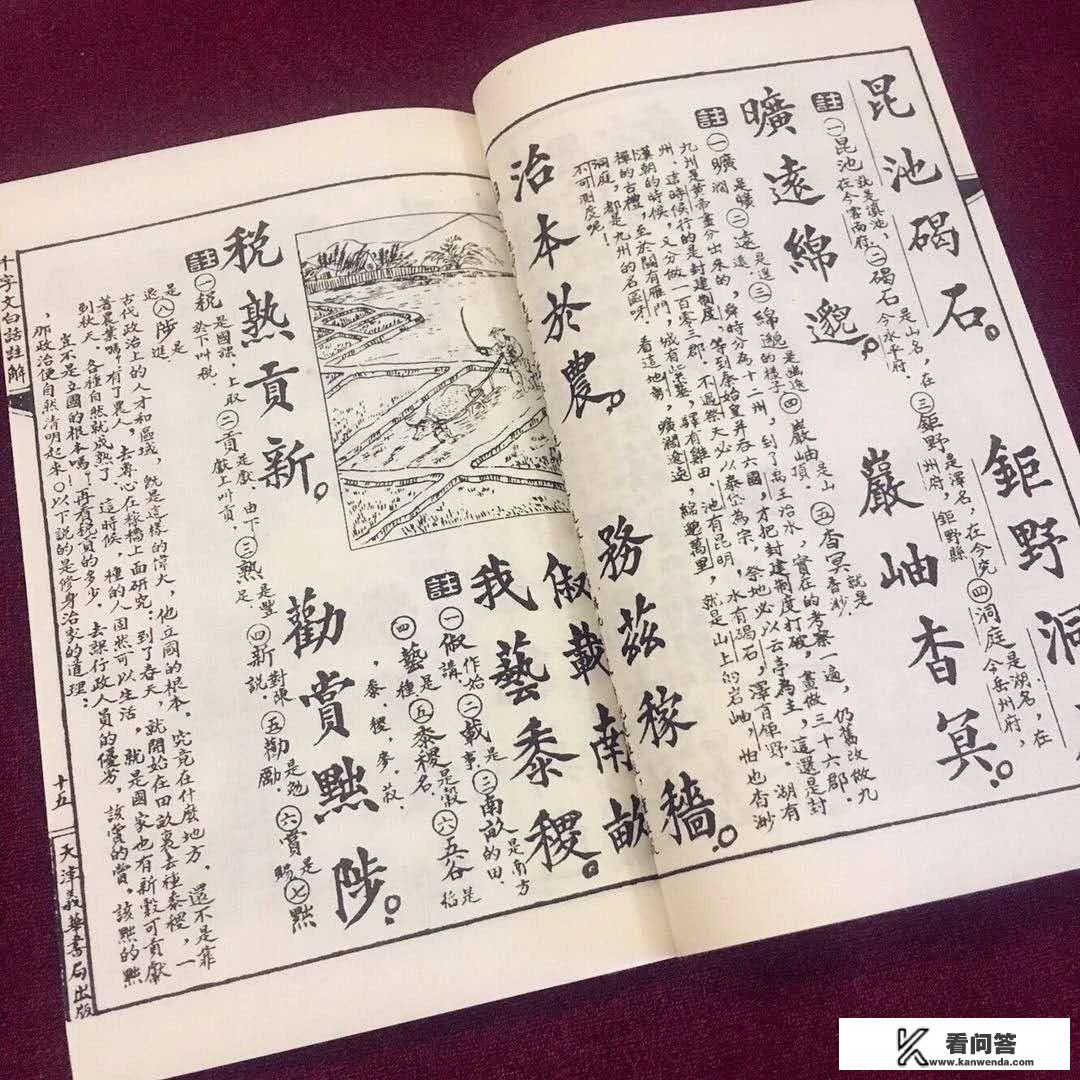 昆池碣石。
鉅野洞
註
㊀昆池就是滇池,在今雲南府,㊁碣石是山名,在今永平府.㊂鉅野是澤名,在今兗州府,鉅野縣㊃洞庭是湖名,在今岳州府,
曠遠綿邈。
巖岫杳冥。
註
㊀曠是曠濶㊁遠是遙遠,㊂綿邈是綿遠的樣子㊃巖岫是山頂.㊄杳冥就是杳渺.
九州是黃帝畫分出來的,舜時分為十二州,到了禹王治水,實在的考察一遍,仍舊改做九
州.這時候行的是封建制度,等到秦始皇并吞六國,才把封建制度打破,畫做三十六郡.
漢朝的時候,又分做一百零三郡.不過祭天必以泰岱為宗,祭地必以云亭為主,這還是封
禪的古禮,至於關有雁門,城有紫塞,驛有雞田,池有昆明,水有碣石,澤有鉅野.湖有
洞庭,都是九州的名區呀.看這地勢,曠濶遼遠,綿邈萬里,就是山上的岩岫,怕也杳渺
不可測度呢!
治本於農。
務茲稼穡。
俶載南畝
我藝黍稷。
註
㊀俶作始講.㊁載是事.㊂南畝是南方的田.
㊃藝是種㊄黍稷是穀名㊅五谷是稻
,黍,稷,麥,菽.
稅熟貢新。
勸賞黜陟。
註
㊀稅是國課,上取於下叫稅.㊁貢是獻.由下獻上叫貢㊂熟是豐足.㊃新對陳說.㊄勸是勉勵.㊅賞是賜㊆黜
是退㊇陟是進
古代政治上的人才和區域,既是這樣的偉大,他立國的根本,究竟在什麼地方.還不是靠
著農業嗎?有了農人,去專心在稼穡上面研究.到了春天,就開始在田畝裏去種黍稷,一
到秋天,各種自然就成熟了,這時候,種的人固然可以生活,就是國家也有新穀可貢獻
,豈不是立國的根本嗎!再看稅貢的多少,去課行政人員的優劣,該賞的賞.該黜的黜
,那政治便自然清明起來○以下說的是修身治家的道理.
千字文白話註解
十五
天津義華書局出版
看问答
www.kanwenda.com